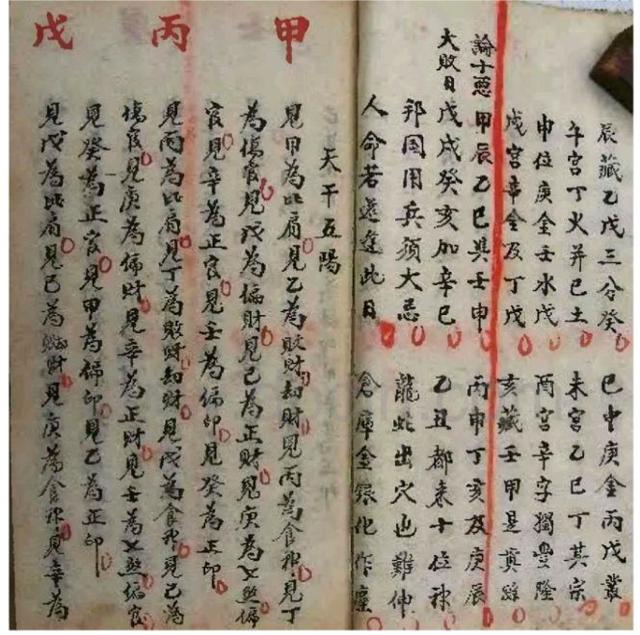 辰藏乙戊三分癸 巳中庚金丙戊叢
午宮丁火并己土 未宮乙己丁其宗
申位庚金壬水戊 酉宮辛字獨豐隆
戌宮辛金及丁戊 亥藏壬甲是真踪
論十惡
大敗日
甲辰乙巳與壬申 丙申丁亥及庚辰
戊戌癸亥加辛巳 乙丑都来十位神
邦国用兵須大忌 龍蛇出穴也難伸
人命若還逢此日 倉庫金銀化作塵
天干五陽
甲
見甲為比肩見乙為敗財劫財見丙為食神見丁
為傷官見戊為偏財見己為正財見庚為七煞偏
官見辛為正官見壬為偏印見癸為正印
丙
見丙為比肩見丁為敗財劫財見戊為食神見己為
傷官見庚為偏財見辛為正財見壬為七煞偏官
見癸為正官見甲為偏印見乙為正印
戊
見戊為比肩見己為財見庚為食神見辛為